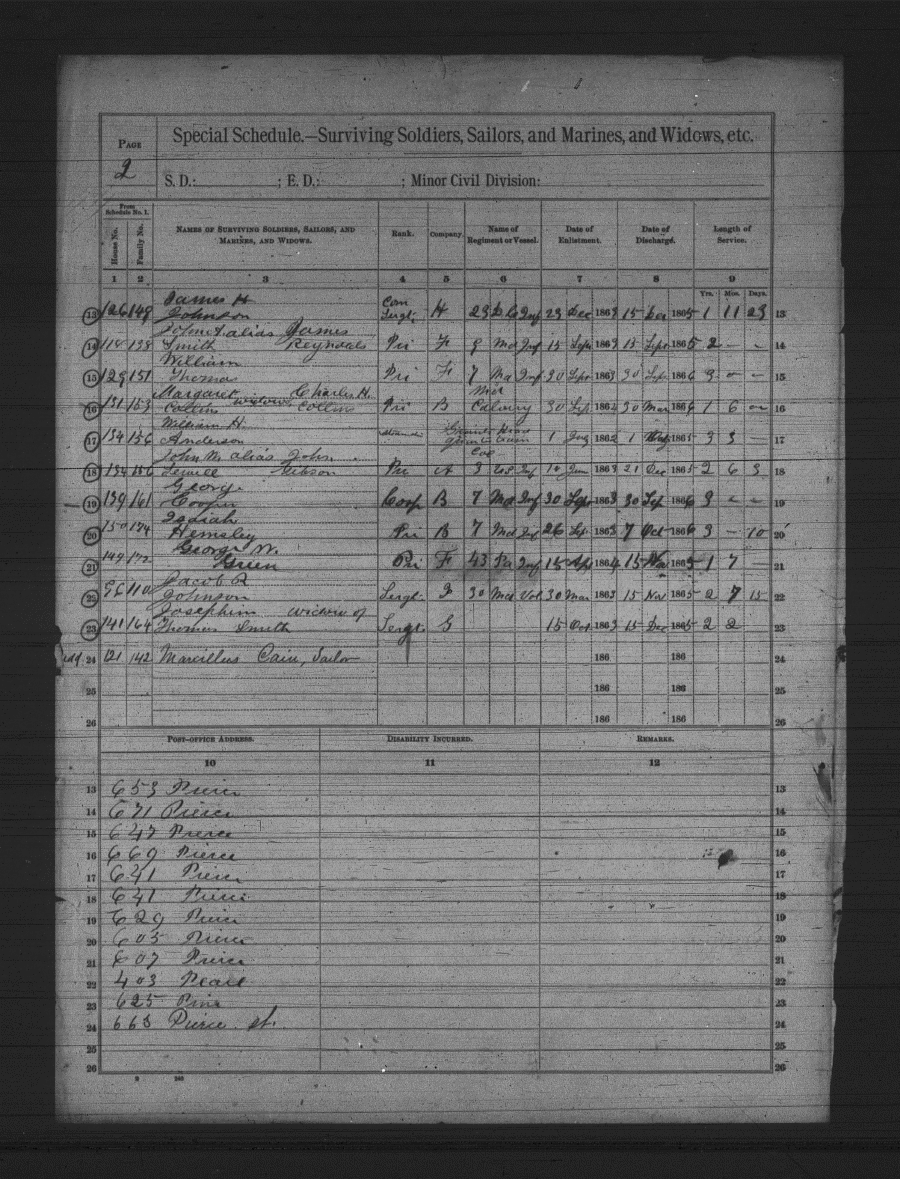 PAGE
2
Special Schedule.—Surviving Soldiers, Sailors, and Marines, and Widows, etc.
S. D.: ; E. D.: ; Minor Civil Division:
From Schedule No. 1.
House No.
Family No.
NAMES OF SURVIVING SOLDIERS, SAILORS, AND MARINES, AND WIDOWS.
Rank.
Company.
Name of Regiment or Vessel.
Date of Enlistment.
Date of Discharge.
Length of Service.
1 2 3 4 5 6 7 8 9
Yrs. Mos. Days.
James H
13 126 148 Johnson Sergt. H 23 Inf 23 Dec 1863 15 Dec 1865 1 11 23 13
alias James
14 114 138 Smith Reynolds Pri F 9 Md Inf 15 Sept 1863 15 Sept 1865 2 - - 14
William
15 129 151 Thomas Pri F 7 Md Inf 30 Sept 1863 30 Sep 1866 3 - - 15
Margaret Charles H.
16 131 153 Collins widow Collins Pri B Calvary 30 Sep 1864 30 Mar 1866 1 6 16
William H.
17 134 156 Anderson 1 1862 1 1865 3 3 - 17
John M alias John
18 134 156 Gibson Pri A 3 Inf 18 Jun 1863 21 Dec 1865 2 6 3 18
George
19 139 161 Cooper Corp B 7 Md Inf 30 Sept 1863 30 Sep 1866 3 - - 19
Isaiah
20 150 174 Hemsley Pri B 7 Md Inf 26 Sep 1863 7 Oct 1866 3 - 10 20
George W.
21 149 172 Green Pri F 43 Pa Inf 15 Apr 1864 15 1865 1 7 - 21
Jacob R
22 96 110 Johnson Sergt. 30 Md Vol 30 Mar 1863 15 Nov 1865 2 7 15 22
Josephine widow of
23 141 164 Thomas Smith Sergt. G 15 Oct 1863 15 Dec 1865 2 2 23
24 121 142 Marcillus Cain, Sailor 186 186 24
25 186 186 25
26 186 186 26
POST-OFFICE ADDRESS.
DISABILITY INCURRED.
REMARKS.
10 11 12
13 653 Pierce 13
14 671 Pierce 14
15 647 Pierce 15
16 669 Pierce 16
17 641 Pierce 17
18 641 Pierce 18
19 629 Pierce 19
20 605 Pierce 20
21 607 Pierce 21
22 403 Pearl 22
23 625 23
24 663 Pierce st. 24
25 25
26 26